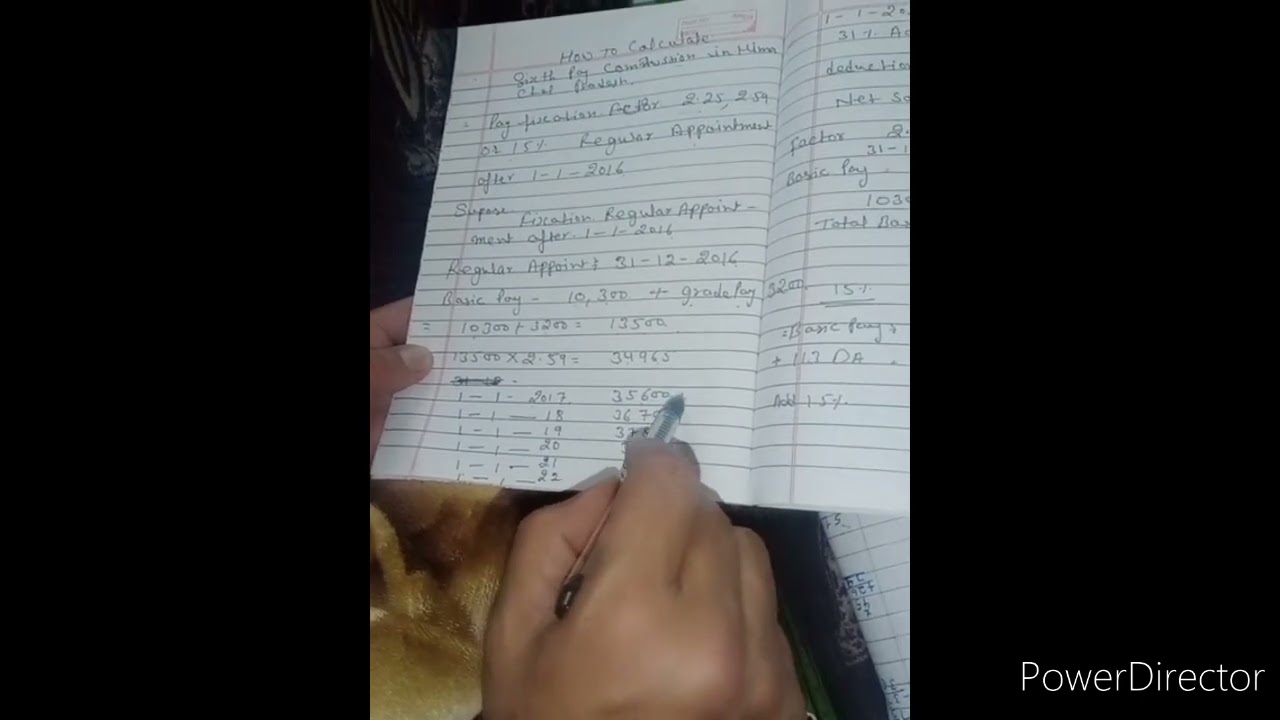 How To Calculate
Sixth Pay Commission in Hima
Chal Pradesh.
= Pay fixcation Factor 2.25, 2.59
or 15% Regular Appointment
after 1-1-2016
Supose Fixcation Regular Appoint-
ment after 1-1-2016
Regular Appoint: 31-12-2016
Basic Pay - 10,300 + grade Pay 3200
= 10300 + 3200 = 13500
13500 × 2.59 = 34965
1-1-2017 35600
1-1-18 367
1-1-19 37
1-1-20
1-1-21
1-1-22
1-1-20
31%
deductio
Net Sa
factor 2
31-1
Basic Pay
1030
Total Bas
15%
= Basic Pay:
+ 113 DA
Add 15%
PowerDirector